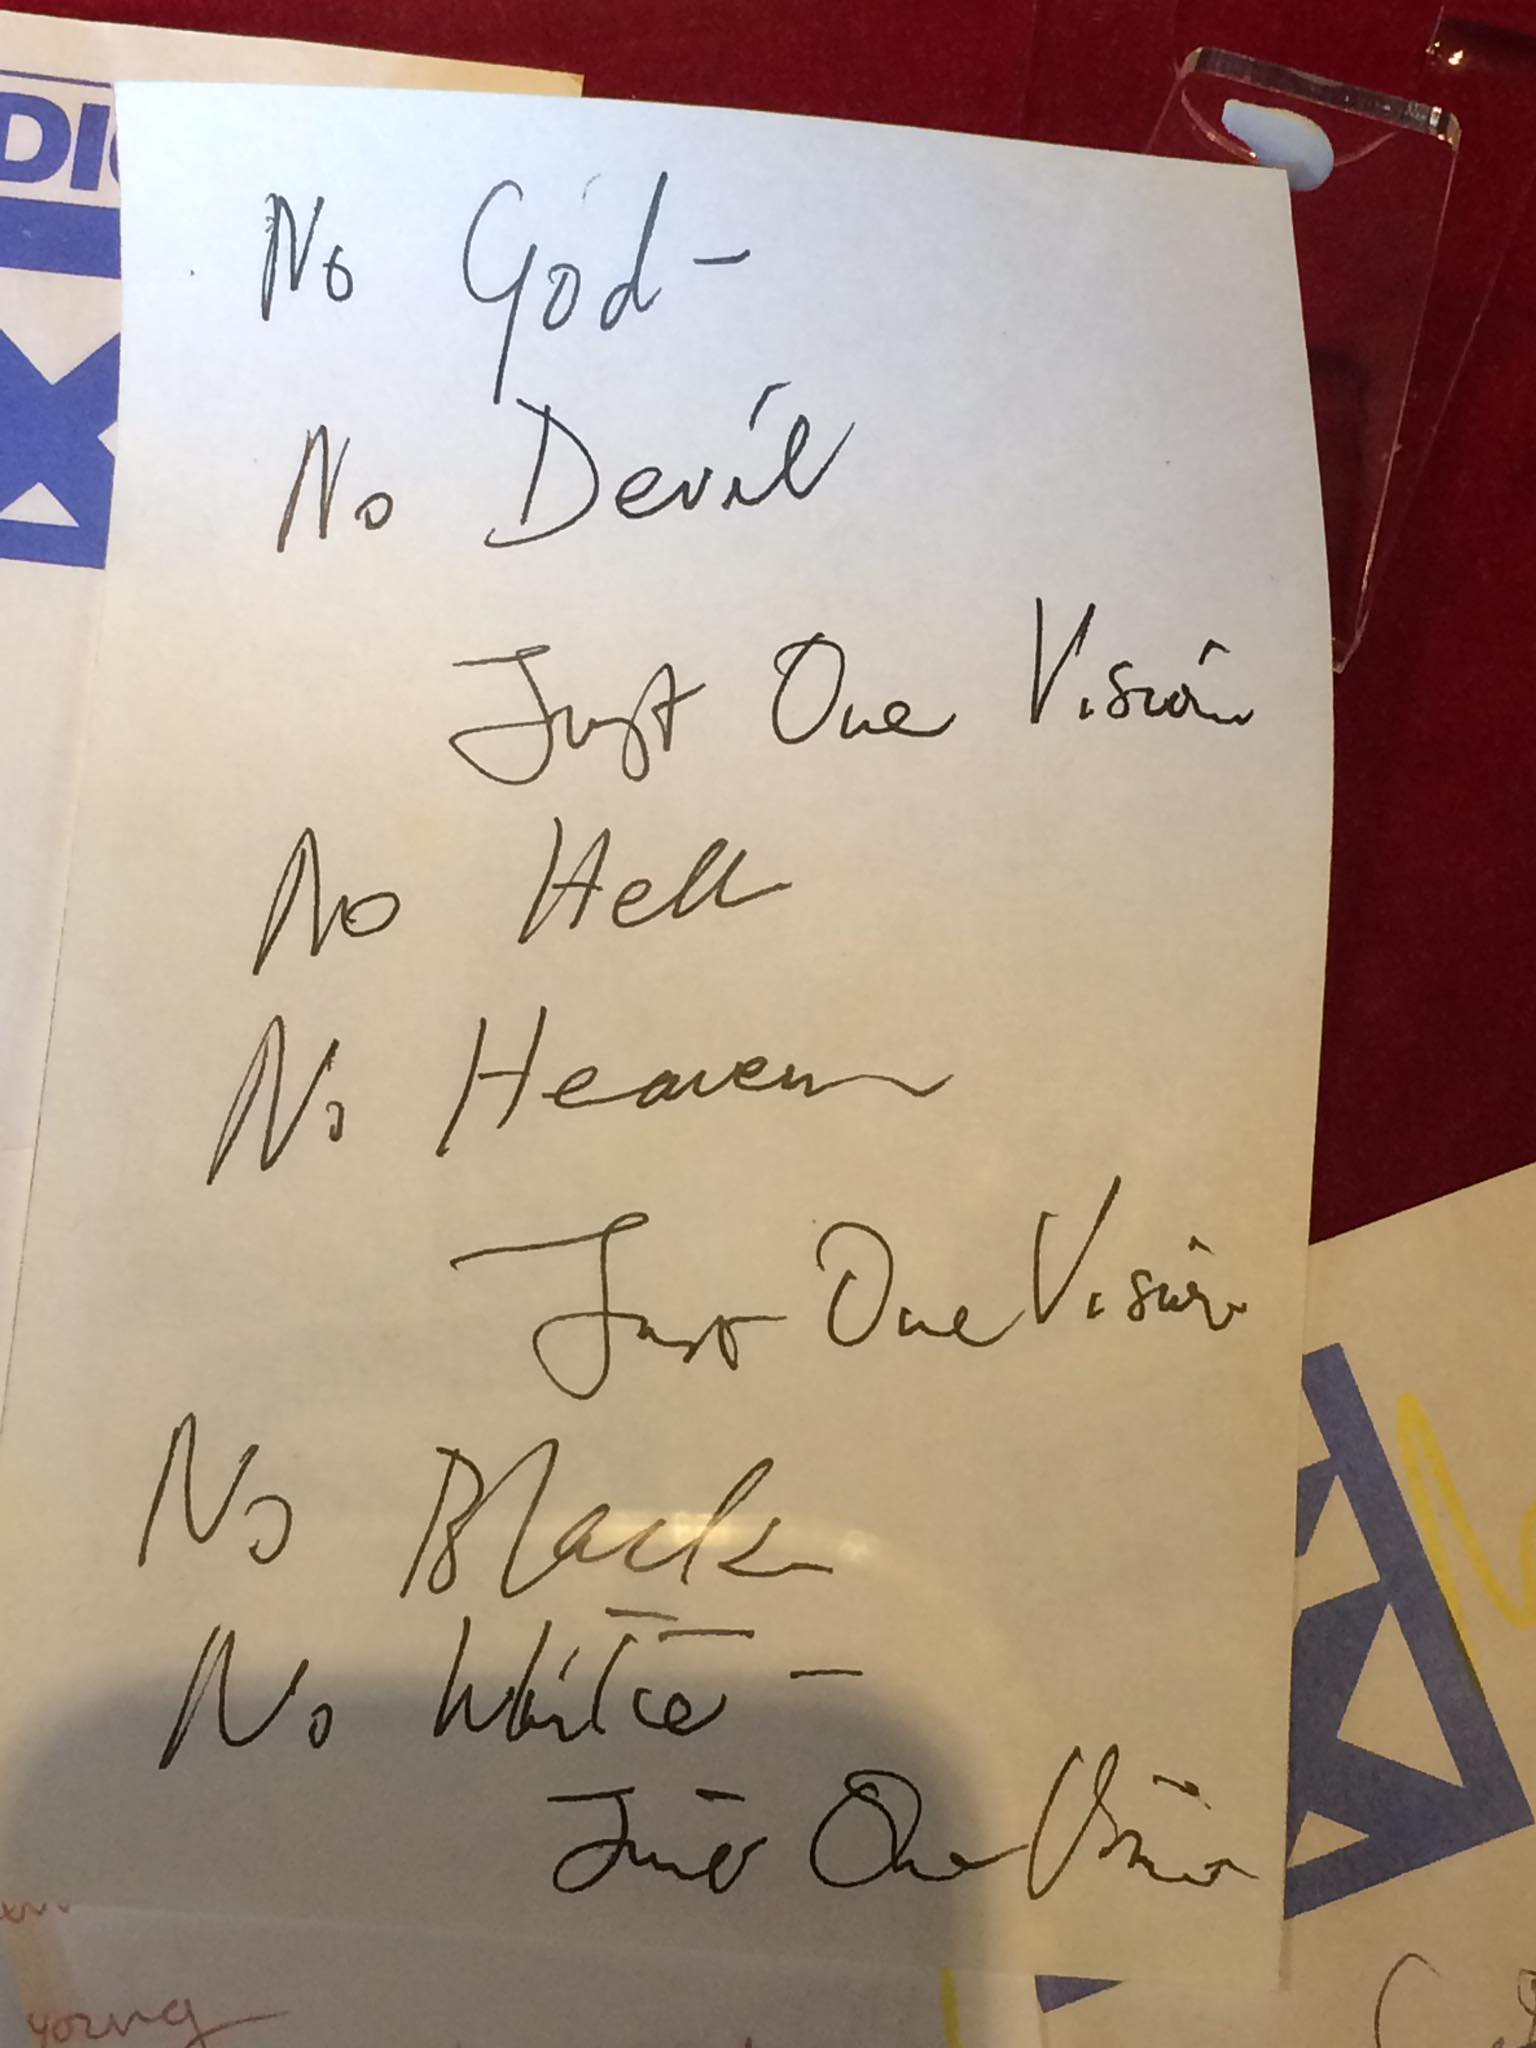 No God -
No Devil
Just One Vision
No Hell
No Heaven
Just One Vision
No Black
No White -
Just One Vision
young